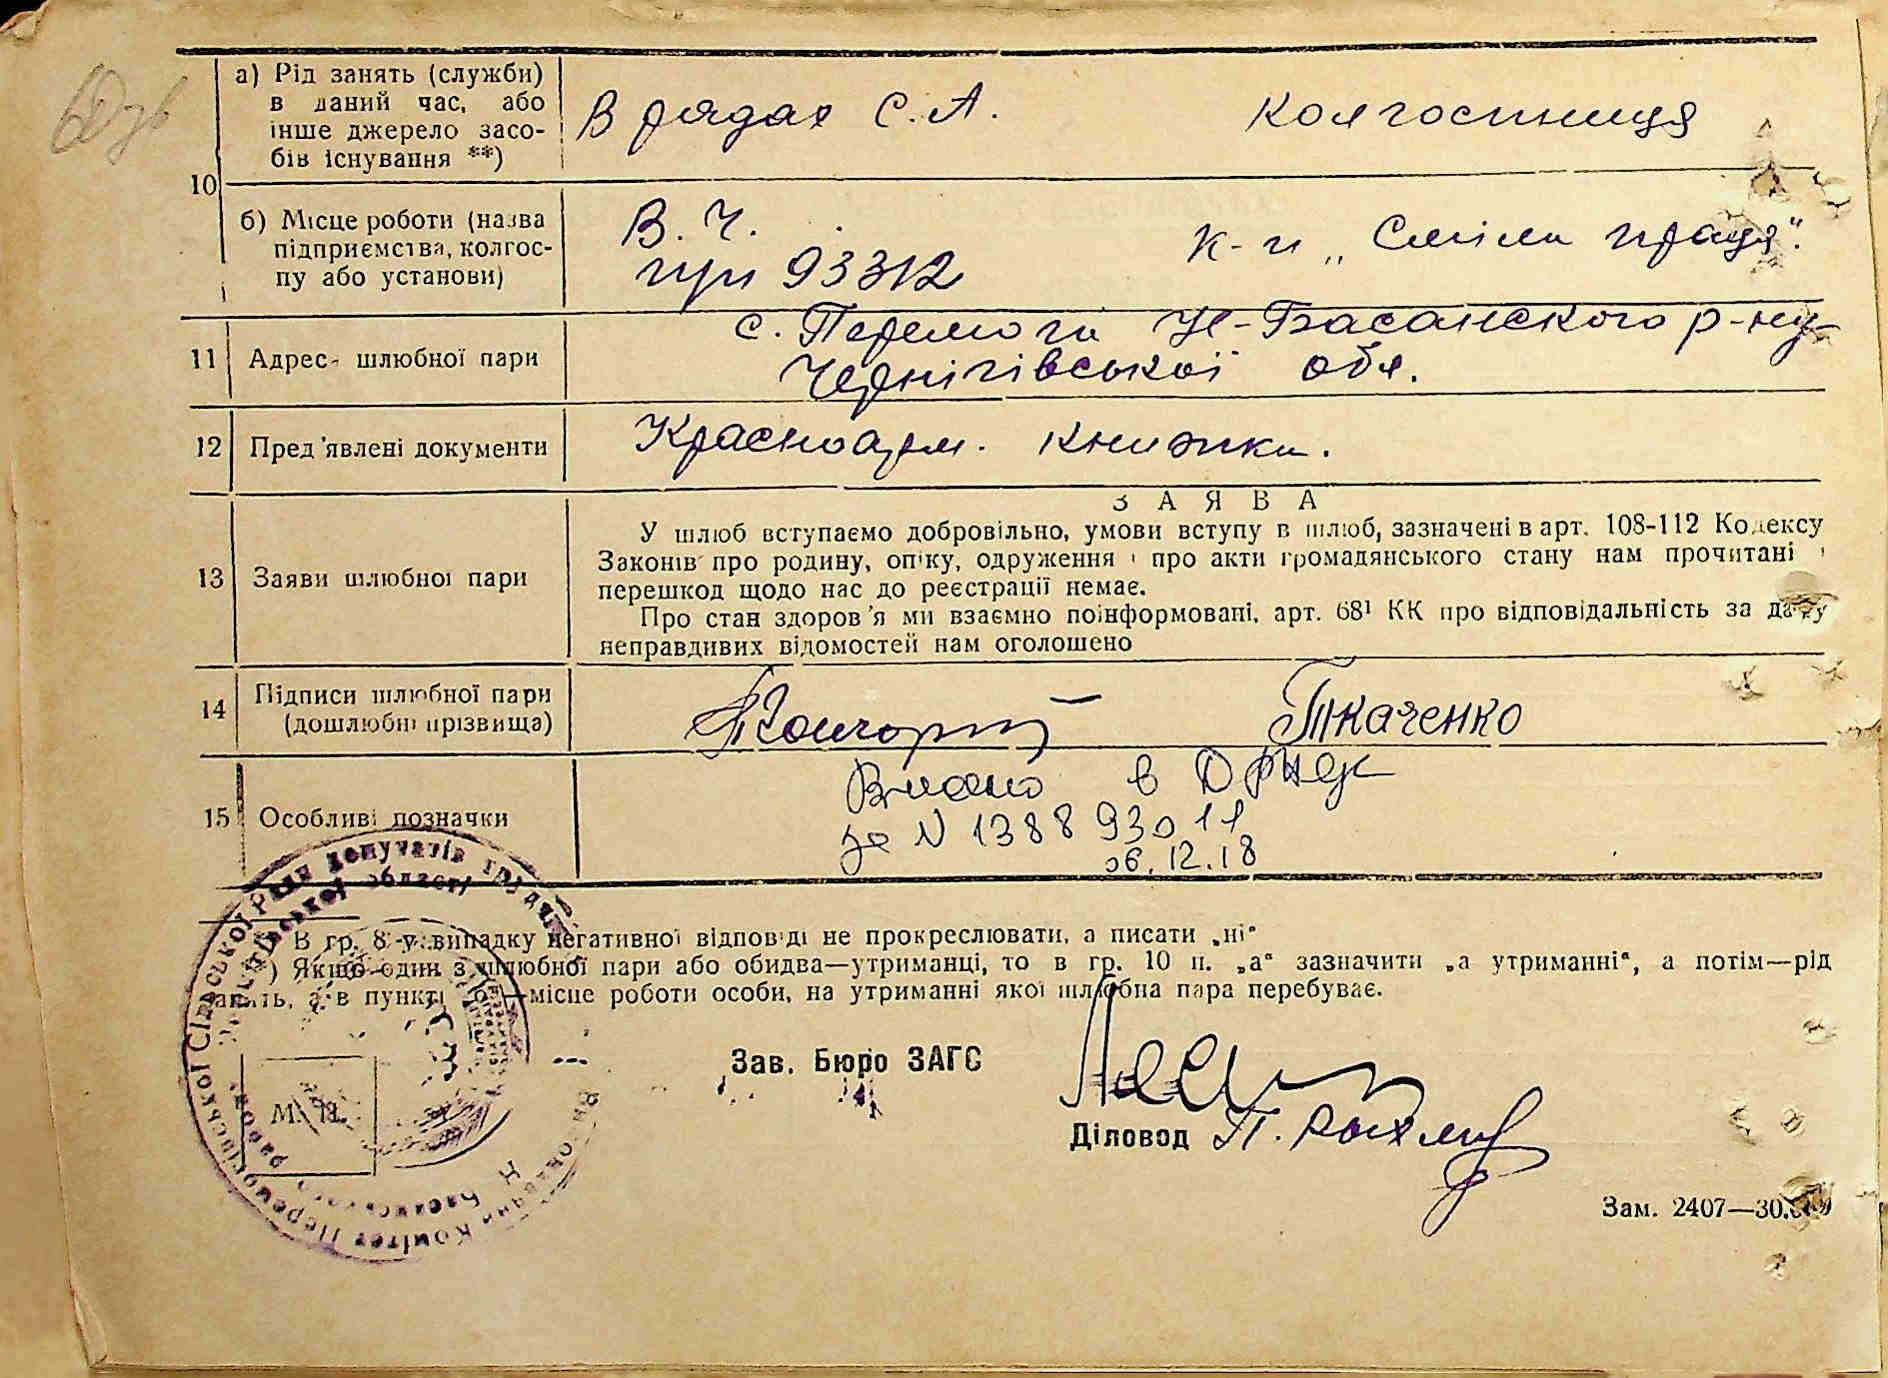 а) Рід занять (служби)
в даний час, або
інше джерело засо-
бів існування **)
В рядах С. А.
Колгоспниця
10
б) Місце роботи (назва
підприємства, колгос-
пу або установи)
В. Ч.
п/п 93312
к-п „Сміла праця".
11
Адреса шлюбної пари
с. Перемога Н-Басанского р-ну
Чернігівської обл.
12
Пред'явлені документи
Красноарм. книжка.
13
Заяви шлюбної пари
ЗАЯВА
У шлюб вступаємо добровільно, умови вступу в шлюб, зазначені в арт. 108-112 Кодексу
Законів про родину, опіку, одруження і про акти громадянського стану нам прочитані і
перешкод щодо нас до реєстрації немає.
Про стан здоров'я ми взаємно поінформовані, арт. 68¹ КК про відповідальність за дачу
неправдивих відомостей нам оголошено
14
Підписи шлюбної пари
(дошлюбні прізвища)
Ткаченко
15
Особливі позначки
Внесено в ДРАЦС
за N 138893011
06.12.18
В гр. 8 у випадку негативної відповіді не прокреслювати, а писати „ні"
) Якщо один з шлюбної пари або обидва—утриманці, то в гр. 10 п. „а" зазначити „а утриманні", а потім—рід
занять, а в пункті —місце роботи особи, на утриманні якої шлюбна пара перебуває.
Зав. Бюро ЗАГС
М. П.
Діловод
Зам. 2407—30.
Виконавчий Комітет Перемозівської Сільської Ради депутатів трудящих
Н Басанського району Чернігівської області